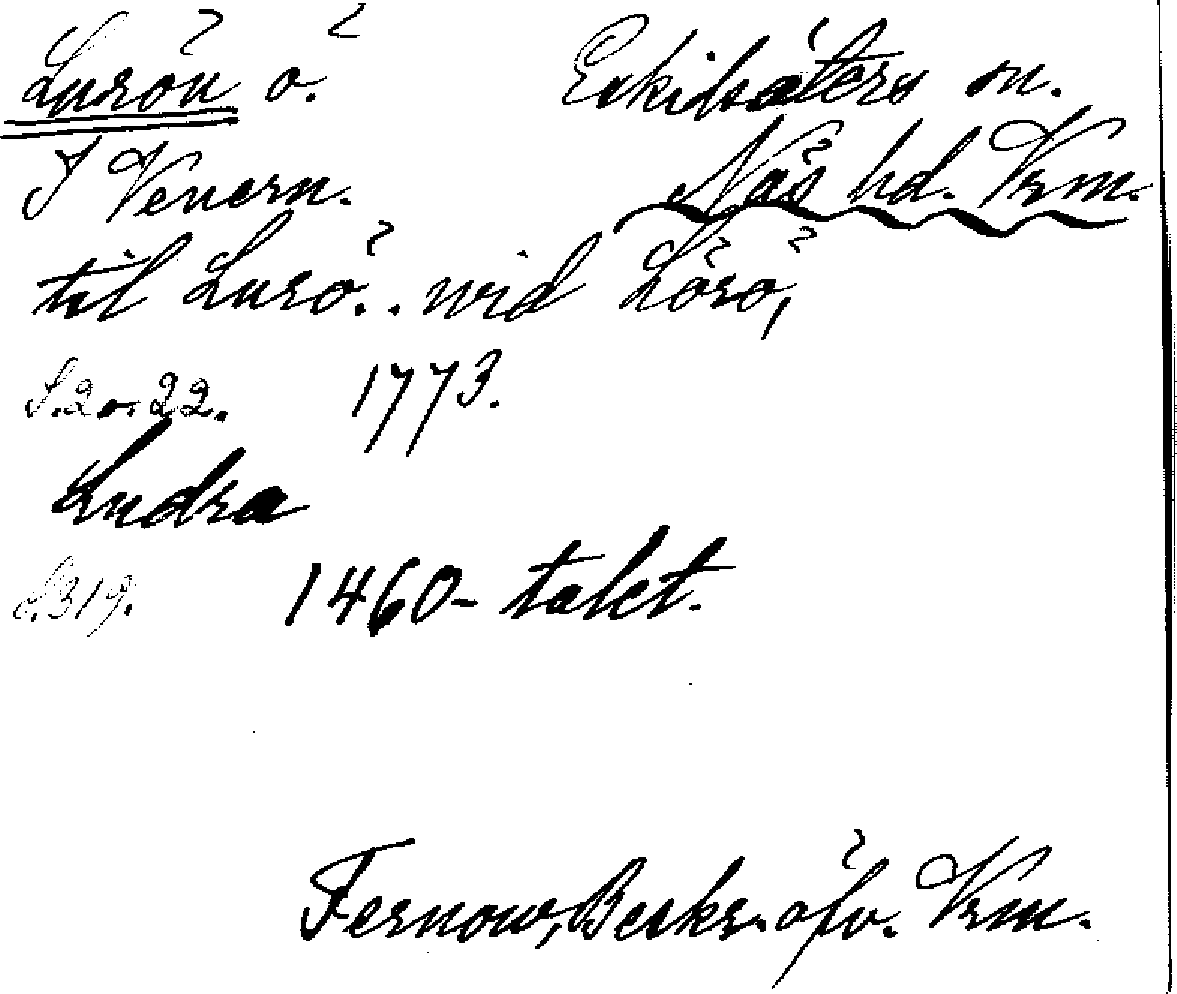 Lurön ö. Eskilsäters sn.
I Venern. Näs hd. Vrm.
til Lurö.. wid Lörö,
S. 20. 22. 1773.
Ludra
S. 319. 1460-talet.
Fernow, Beskr. öfv. Vrm.